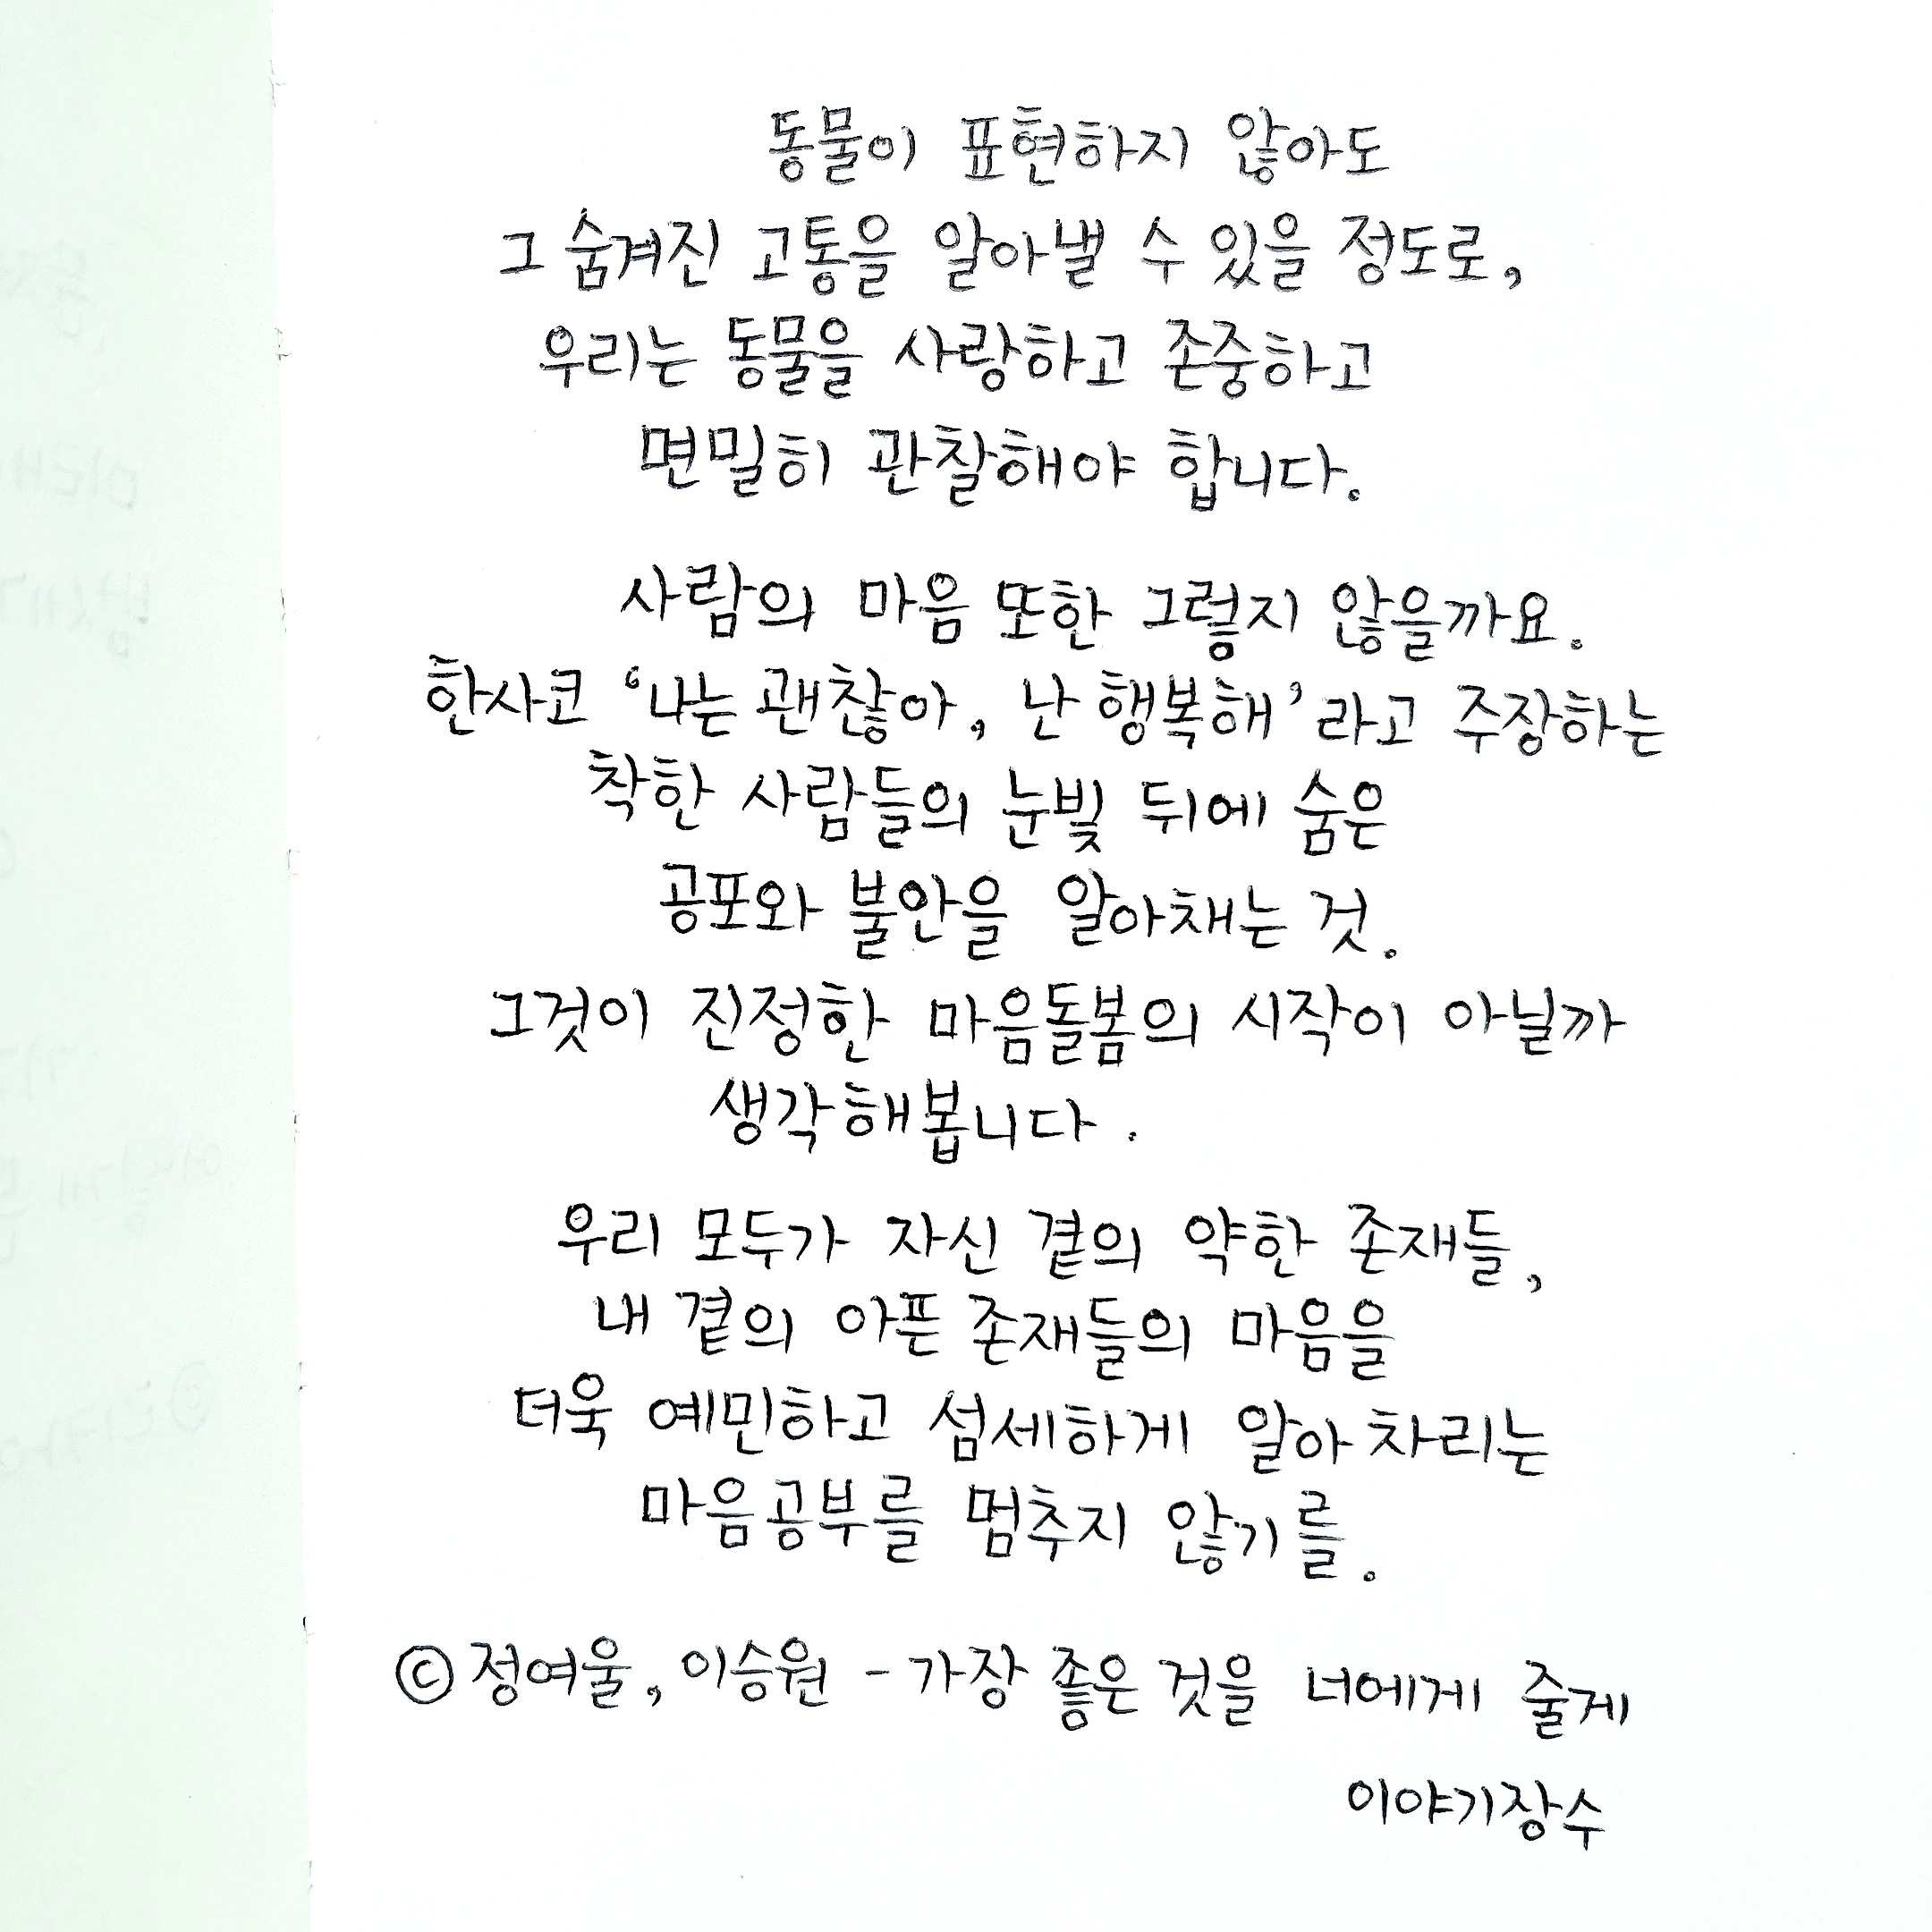 동물이 표현하지 않아도
그 숨겨진 고통을 알아낼 수 있을 정도로,
우리는 동물을 사랑하고 존중하고
면밀히 관찰해야 합니다.
사람의 마음 또한 그렇지 않을까요.
한사코 ‘나는 괜찮아, 난 행복해’라고 주장하는
착한 사람들의 눈빛 뒤에 숨은
공포와 불안을 알아채는 것.
그것이 진정한 마음돌봄의 시작이 아닐까
생각해봅니다.
우리 모두가 자신 곁의 약한 존재들,
내 곁의 아픈 존재들의 마음을
더욱 예민하고 섬세하게 알아차리는
마음공부를 멈추지 않기를.
©정여울, 이승원 - 가장 좋은 것을 너에게 줄게
이야기장수